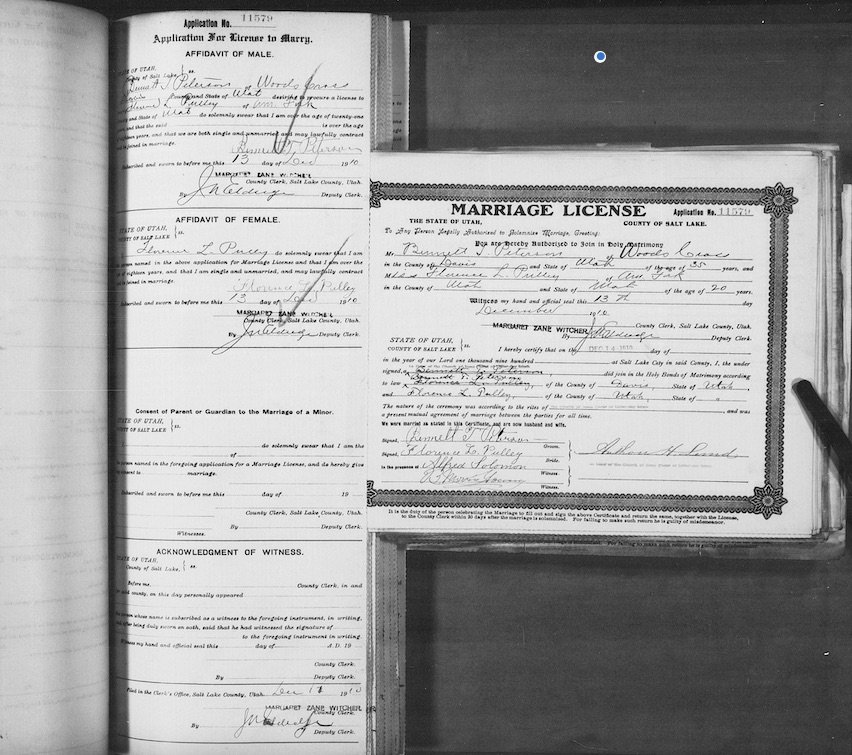 Application No. 11579
Application For License to Marry.
AFFIDAVIT OF MALE.
STATE OF UTAH,
County of Salt Lake ss.
Bennett T Peterson of Woods Cross
County and State of Utah desiring to procure a license to
Florence L. Pulley of Am. Fork
and State of Utah do solemnly swear that I am over the age of twenty-one
years, and that the said is over the age
eighteen years, and that we are both single and unmarried and may lawfully contract
and be joined in marriage.
Bennett T. Peterson
Subscribed and sworn to before me this 13 day of Dec 1910
MARGARET ZANE WITCHER
County Clerk, Salt Lake County, Utah.
By J M Eldredge Deputy Clerk.
AFFIDAVIT OF FEMALE.
STATE OF UTAH,
COUNTY OF SALT LAKE ss.
Florence L Pulley do solemnly swear that I am
person named in the above application for Marriage License and that I am over the
of eighteen years, and that I am single and unmarried, and may lawfully contract
and be joined in marriage.
Florence L. Pulley
Subscribed and sworn to before me this 13 day of Dec 1910
MARGARET ZANE WITCHER
County Clerk, Salt Lake County, Utah.
By J M Eldredge Deputy Clerk.
Consent of Parent or Guardian to the Marriage of a Minor.
STATE OF UTAH
COUNTY OF SALT LAKE ss.
do solemnly swear that I am the
of
person named in the foregoing application for a Marriage License, and do hereby give
consent to marriage.
Subscribed and sworn to before me this day of 19
County Clerk, Salt Lake County, Utah.
By Deputy Clerk.
Witnesses.
ACKNOWLEDGMENT OF WITNESS.
STATE OF UTAH,
County of Salt Lake, ss.
Before me, County Clerk, in and
for said county, on this day personally appeared
person whose name is subscribed as a witness to the foregoing instrument, in writing,
and after being duly sworn on oath, said that he had witnessed the signature of
to the foregoing instrument in writing.
Witness my hand and official seal this day of A.D. 19
County Clerk.
By Deputy Clerk.
Filed in the Clerk's Office, Salt Lake County, Utah. Dec 1910
MARGARET ZANE WITCHER
County Clerk.
By J M Eldredge Deputy Clerk.
MARRIAGE LICENSE Application No. 11579
THE STATE OF UTAH, COUNTY OF SALT LAKE.
To Any Person Legally Authorized to Solemnize Marriage, Greeting:
You are Hereby Authorized to Join in Holy Matrimony
Mr. Bennett T. Peterson of Woods Cross
in the County of Davis and State of Utah of the age of 35 years, and
Miss Florence L. Pulley of Am. Fork
in the County of Utah and State of Utah of the age of 20 years.
Witness my hand and official seal this 13th day
December 1910
MARGARET ZANE WITCHER County Clerk, Salt Lake County, Utah.
By J M Eldredge Deputy Clerk.
STATE OF UTAH,
COUNTY OF SALT LAKE ss.
I hereby certify that on the DEC 14 1910 day of
in the year of our Lord one thousand nine hundred at Salt Lake City in said County, I, the under
signed, a did join in the Holy Bonds of Matrimony according
to law Bennett T. Peterson, of the County of Davis, State of Utah,
and Florence L. Pulley, of the County of Utah, State of "
The nature of the ceremony was according to the rites of and was
a present mutual agreement of marriage between the parties for all time.
We were married as stated in this Certificate, and are now husband and wife.
Signed, Bennett T Peterson Groom.
Signed, Florence L. Pulley Bride.
In the presence of Alfred Solomon Witness.
Witness.
Anthon H. Lund
It is the duty of the person celebrating the Marriage to fill out and sign the above Certificate and return the same, together with the License,
to the County Clerk within 30 days after the marriage is solemnized. For failing to make such return he is guilty of misdemeanor.